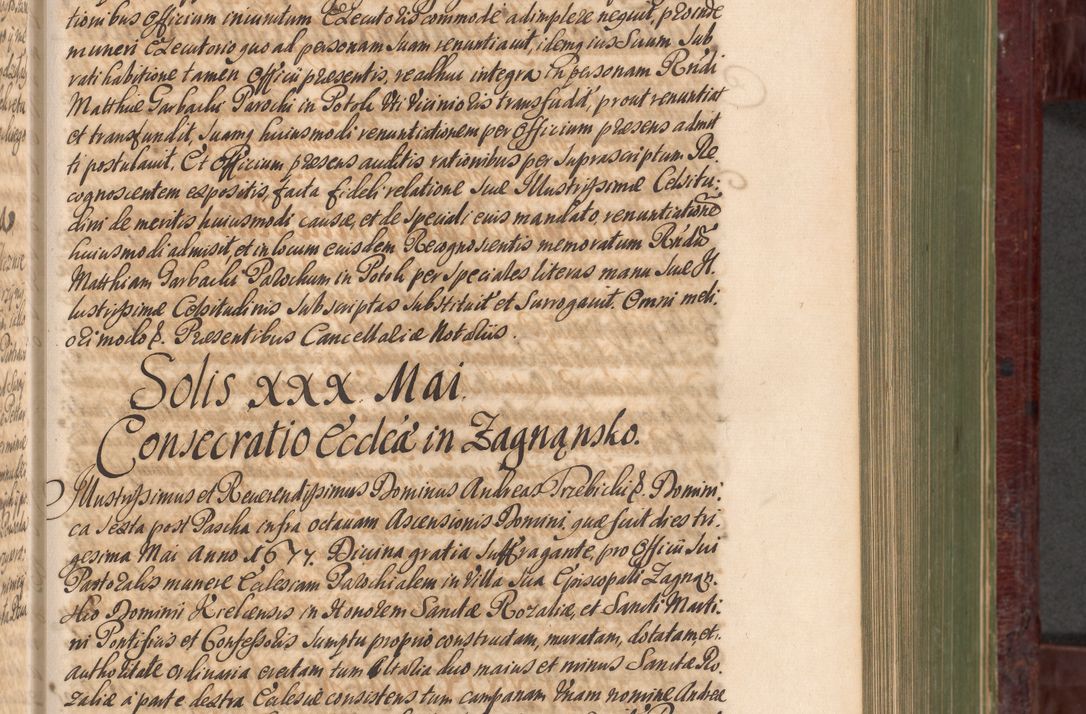 tionibus officium iniunctum Executoris commode adimplere nequit, proinde
muneri Executorio quo ad personam suam renuntiavit, idemq ius Suum Sub
rati habitione tamen Officii præsentis, re adhuc integra in personam Rndi
Matthiæ Garbachi Parochi in Potok Uti Vicinioris transfudit, prout renuntiat
et transfundit, suamq huiusmodi renuntiationem per Officium præsens admit
ti postulavit. Et Officium præsens auditis rationibus per suprascriptum Re
cognoscentem expositis, facta fideli relatione Suæ Illustrissimæ Celsitu:
dini de meritis huiusmodi causæ, et de speciali eius mandato, renuntiatione
huiusmodi admisit, et in locum eiusdem Recognoscentis memoratum Rndu
Matthiam Garbachi Parochum in Potok per speciales literas manu Suæ Il
lustrissimæ Celsitudinis Subscriptas Substituit et Surrogavit. Omni meli
ori modo &. Præsentibus Cancellariæ Notariis.
Solis XXX. Mai.
Consecratio Ecclæ in Zagnąnsko.
Illustrissimus et Reverendissimus Dominus Andreas Trzebicki &. Domini
ca sexta post Pascha infra octavam Ascensionis Domini, quæ fuit dies tri
gesima Mai Anno 1677. Divina gratia Suffragante, pro Officii Sui
Pastoralis munere Ecclesiam Parochialem in Villa Sua Episcopali Zagnan
sko Dominii Kielcensis in Honorem Sanctæ Rozaliæ, et Sancti Marti
ni Pontificis et Confessoris sumptu proprio constructam, muratam, dotatam et
authoritate ordinaria erectam tum Altaria duo maius et minus Sanctæ Ro
zaliæ a parte dextra Ecclesiæ consistens tum campanam Unam nomine Andreæ